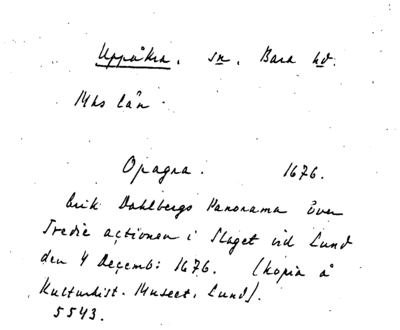 Uppåkra. sn. Bara hd.
Mhs län.
Opagna. 1676.
Erik Dahlbergs Panorama över
Tredie actionen i Slaget vid Lund
den 4 Decemb: 1676. (kopia å
Kulturhist. Museet, Lund).
5543.